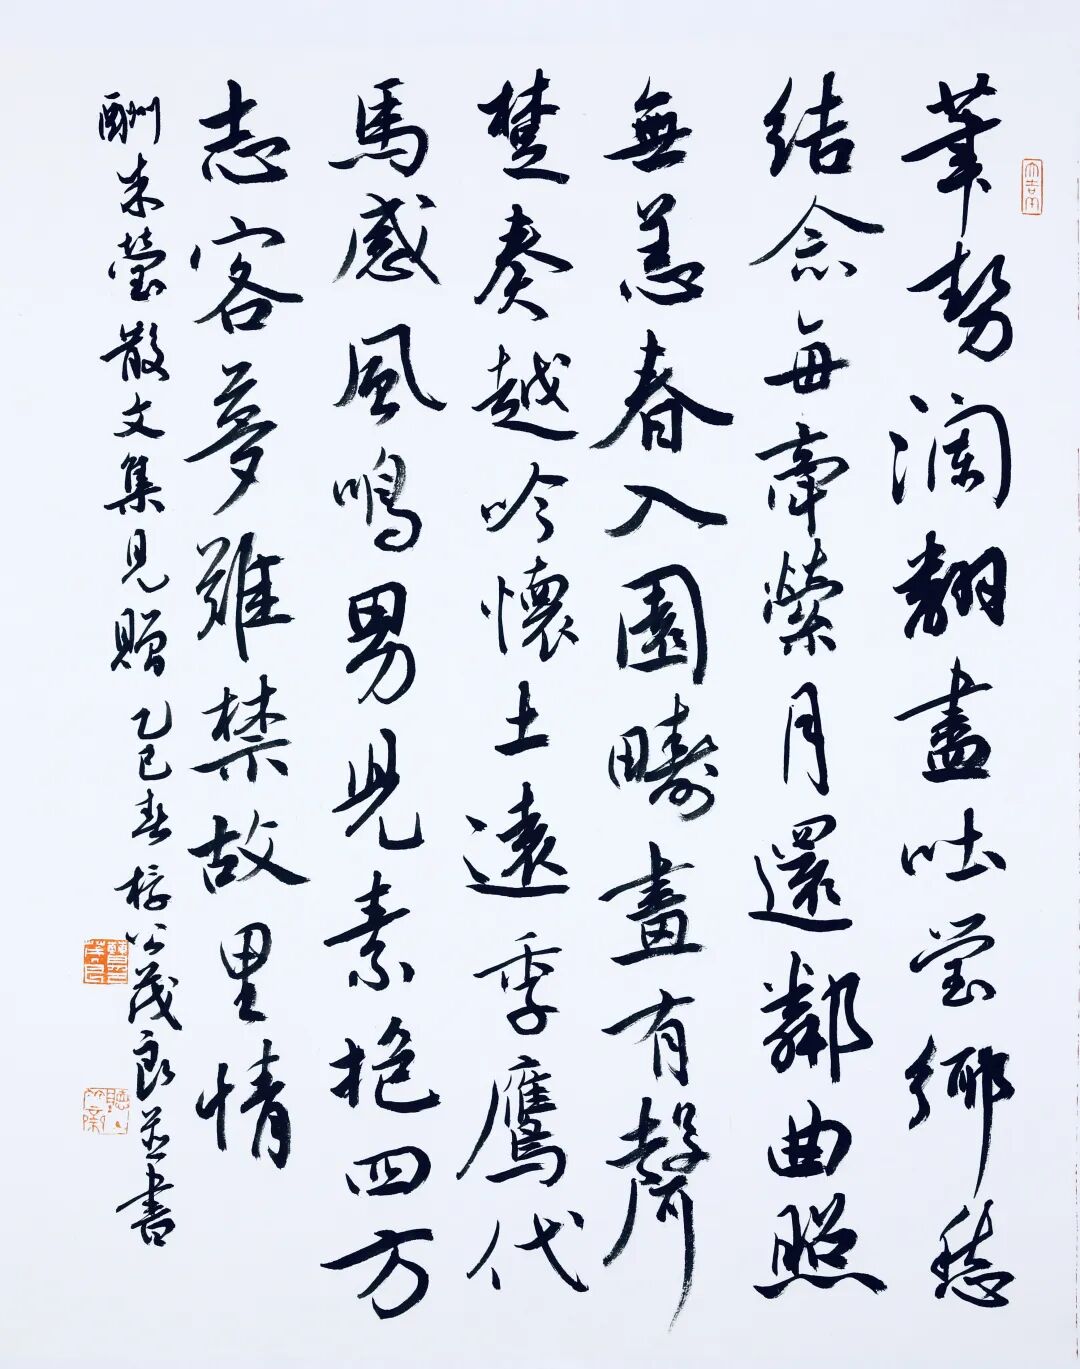 筆勢瀾翻盡吐瑩鄉愁
結念每牽縈月還鄰曲照
無恙春入園疇畫有聲
楚奏越吟懷土遠季鷹代
馬感風鳴男兒素抱四方
志客夢難禁故里情
酬朱瑩散文集見贈乙巳春公茂良並書